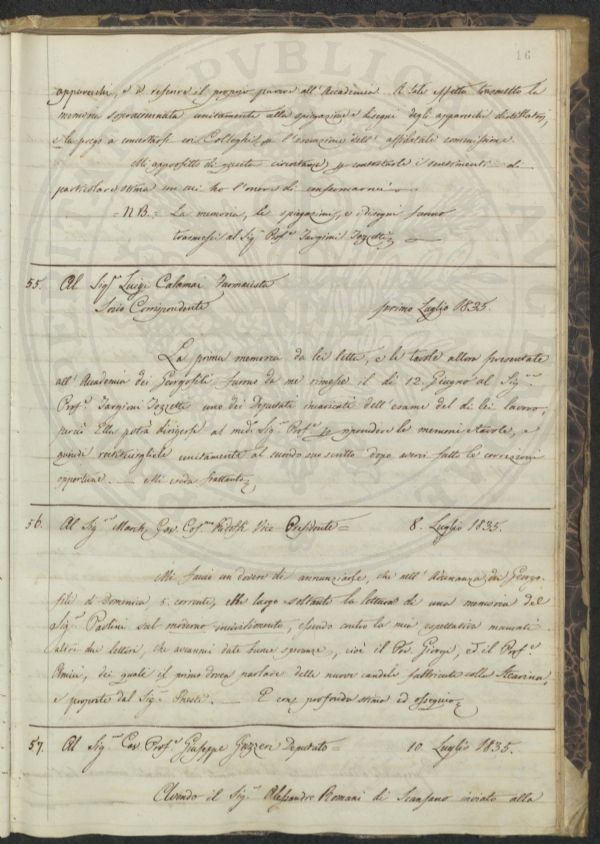 16
apparecchi, e di riferire il proprio parere all'Accademia. A tale effetto trasmetto la
memoria sopraccennata unitamente alla spiegazione e disegni degli apparecchi distillatorj,
e la prego a concertarsi coi Colleghi p l'esecuzione dell'affidatale commissione.
Mi approfitto di questa circostanza p contestarle i sentimenti di
particolare stima con cui ho l'onore di confermarmi
N.B. = La memoria, le spiegazioni, e i disegni furono
trasmessi al Sig.r Prof.e Targioni Tozzetti
55. Al Sig.r Luigi Calamai Farmacista
Socio Corrispondente primo Luglio 1835.
La prima memoria da lei letta, e le tavole allora presentate
all'Accademia dei Georgofili furono da me rimesse il dì 12. Giugno al Sig.re
Prof.e Targioni Tozzetti uno dei Deputati incaricati dell'esame del di lei lavoro,
perciò Ella potrà dirigersi al med.o Sig.r Prof.e p riprendere le memorie e tavole, e
quindi restituirgliele unitamente al secondo suo scritto dopo avervi fatte le correzioni
opportune. — Mi creda frattanto
56. Al Sig.r March. Cav. Cos.mo Ridolfi Vice Presidente = 8. Luglio 1835.
Mi faccio un dovere di annunziarle, che nell'Adunanza dei Georgo-
fili di Domenica 5. corrente, ebbe luogo soltanto la lettura di una memoria del
Sig.r Paolini sul moderno incivilimento, essendo contro la mia aspettativa mancati
altri due lettori, che avevanmi date buone speranze, cioè il Cav. Giorgi, ed il Prof.e
Amici, dei quali il primo doveva parlare delle nuove candele fabbricate colla Stearina,
e proposte dal Sig.r — E con profonda stima ed ossequio
57. Al Sig.r Cav. Prof.e Giuseppe Gazzeri Deputato = 10. Luglio 1835.
Avendo il Sig.r Alessandro Romani di Scansano inviato alla